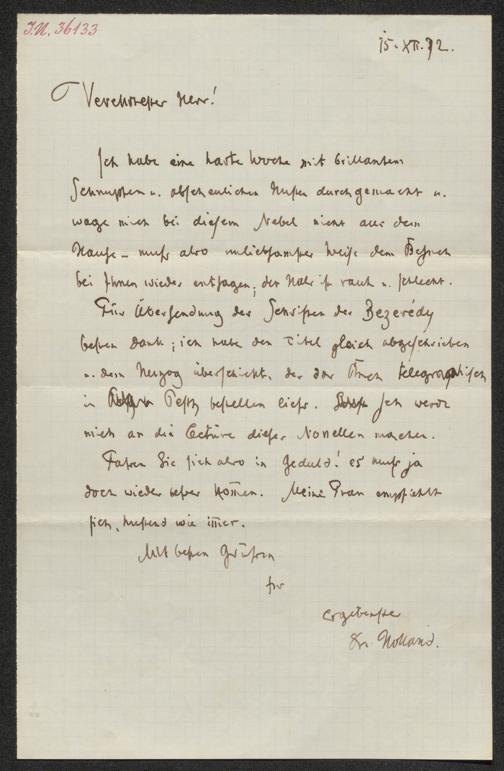 J.N. 36133
15.XII.72.
Verehrtester Herr!
Ich habe eine harte Woche mit brillantem
Schnupfen u. abscheulichem Husten durchgemacht u.
wage mich bei diesem Nebel nicht aus dem
Hause – muß also unliebsamster Weise dem Besuch
bei Ihnen wieder entsagen; der Hals ist rauh u. schlecht.
Für Übersendung der Schriften der Bezerédy
besten Dank; ich habe den Titel gleich abgeschrieben
u. dem Herzog überschickt, der das Buch telegraphisch
in Pesth bestellen ließ. Ich werde
mich an die Lectüre dieser Novellen machen.
Fassen Sie sich also in Geduld! es muß ja
doch wieder besser kommen. Meine Frau empfiehlt
sich, hustend wie immer.
Mit besten Grüßen
Ihr
ergebenster
Dr. Holland.